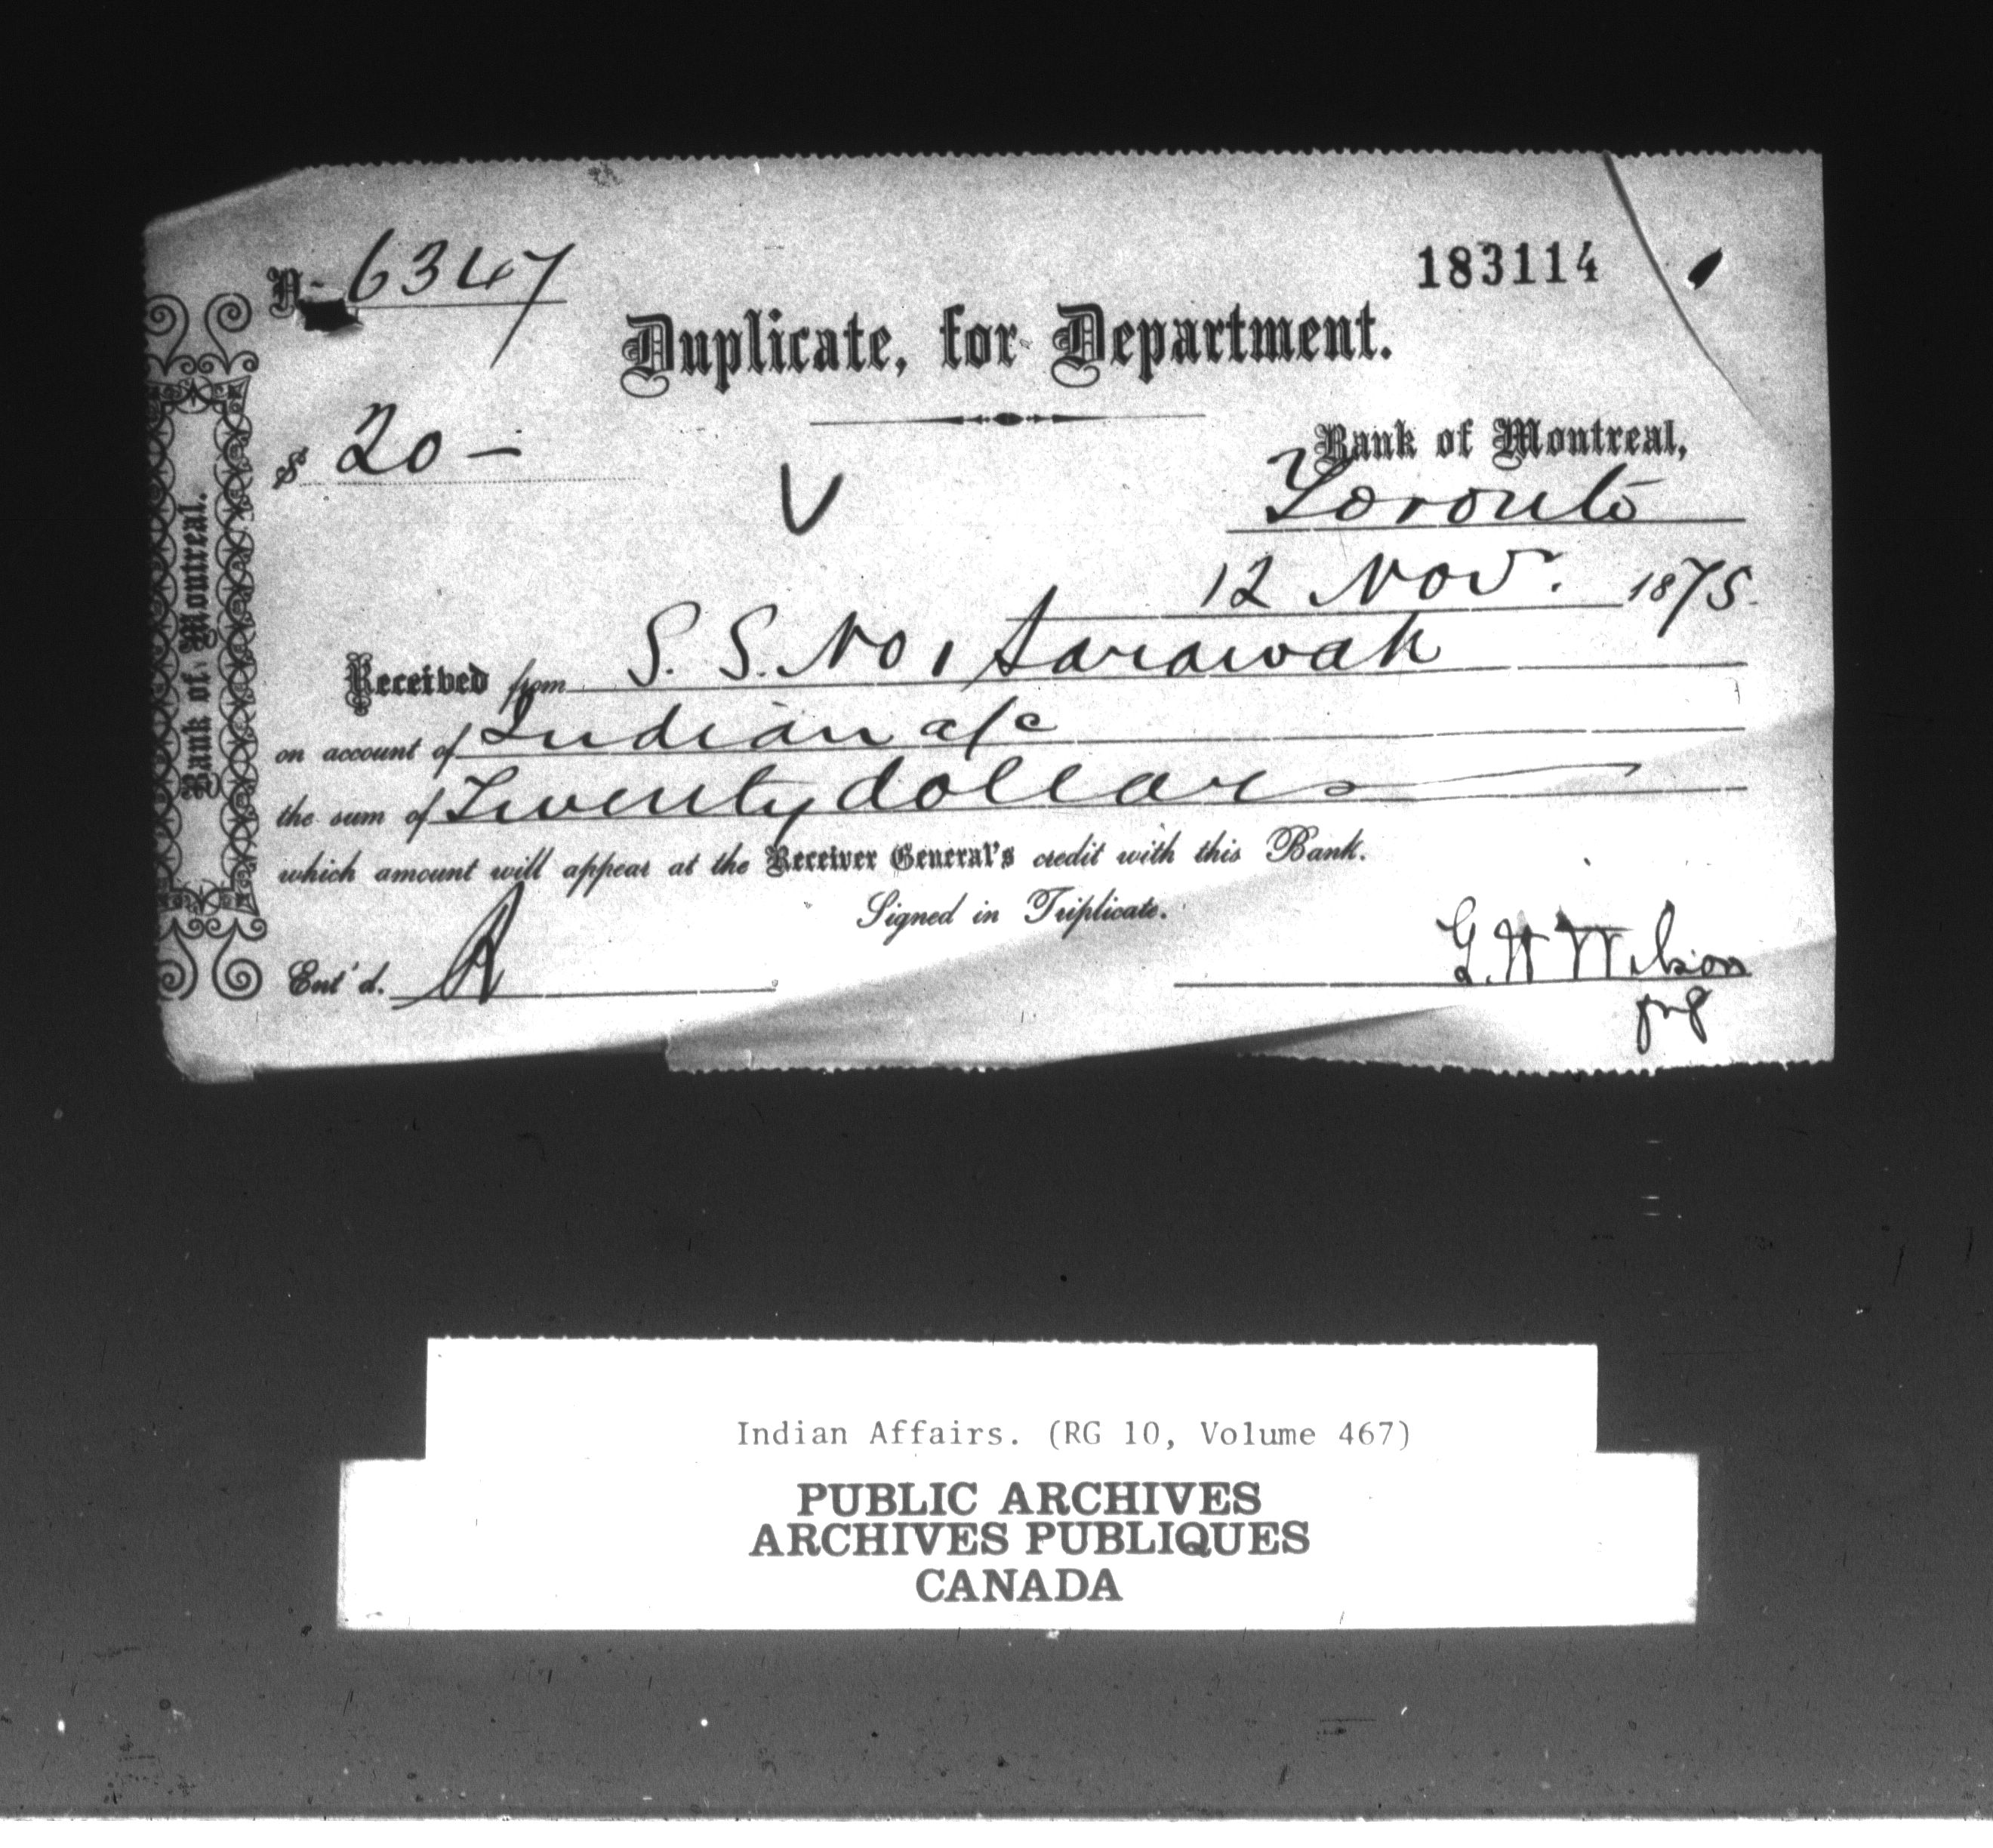 No 6347
183114
Duplicate, for Department.
$ 20 –
V
Bank of Montreal,
Toronto
12 Nov. 1875.
Received from S. S. No 1 Sarawak
on account of Indian a/c
the sum of Twenty dollars
which amount will appear at the Receiver General's credit with this Bank.
Signed in Triplicate.
Ent'd.
G. W Wilson
Bank of Montreal.
Indian Affairs. (RG 10, Volume 467)
PUBLIC ARCHIVES
ARCHIVES PUBLIQUES
CANADA